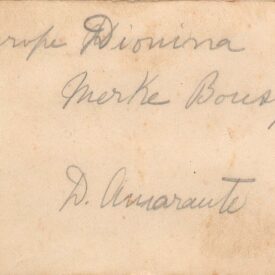 rope Dionina
Merke Bous
D. Amarante